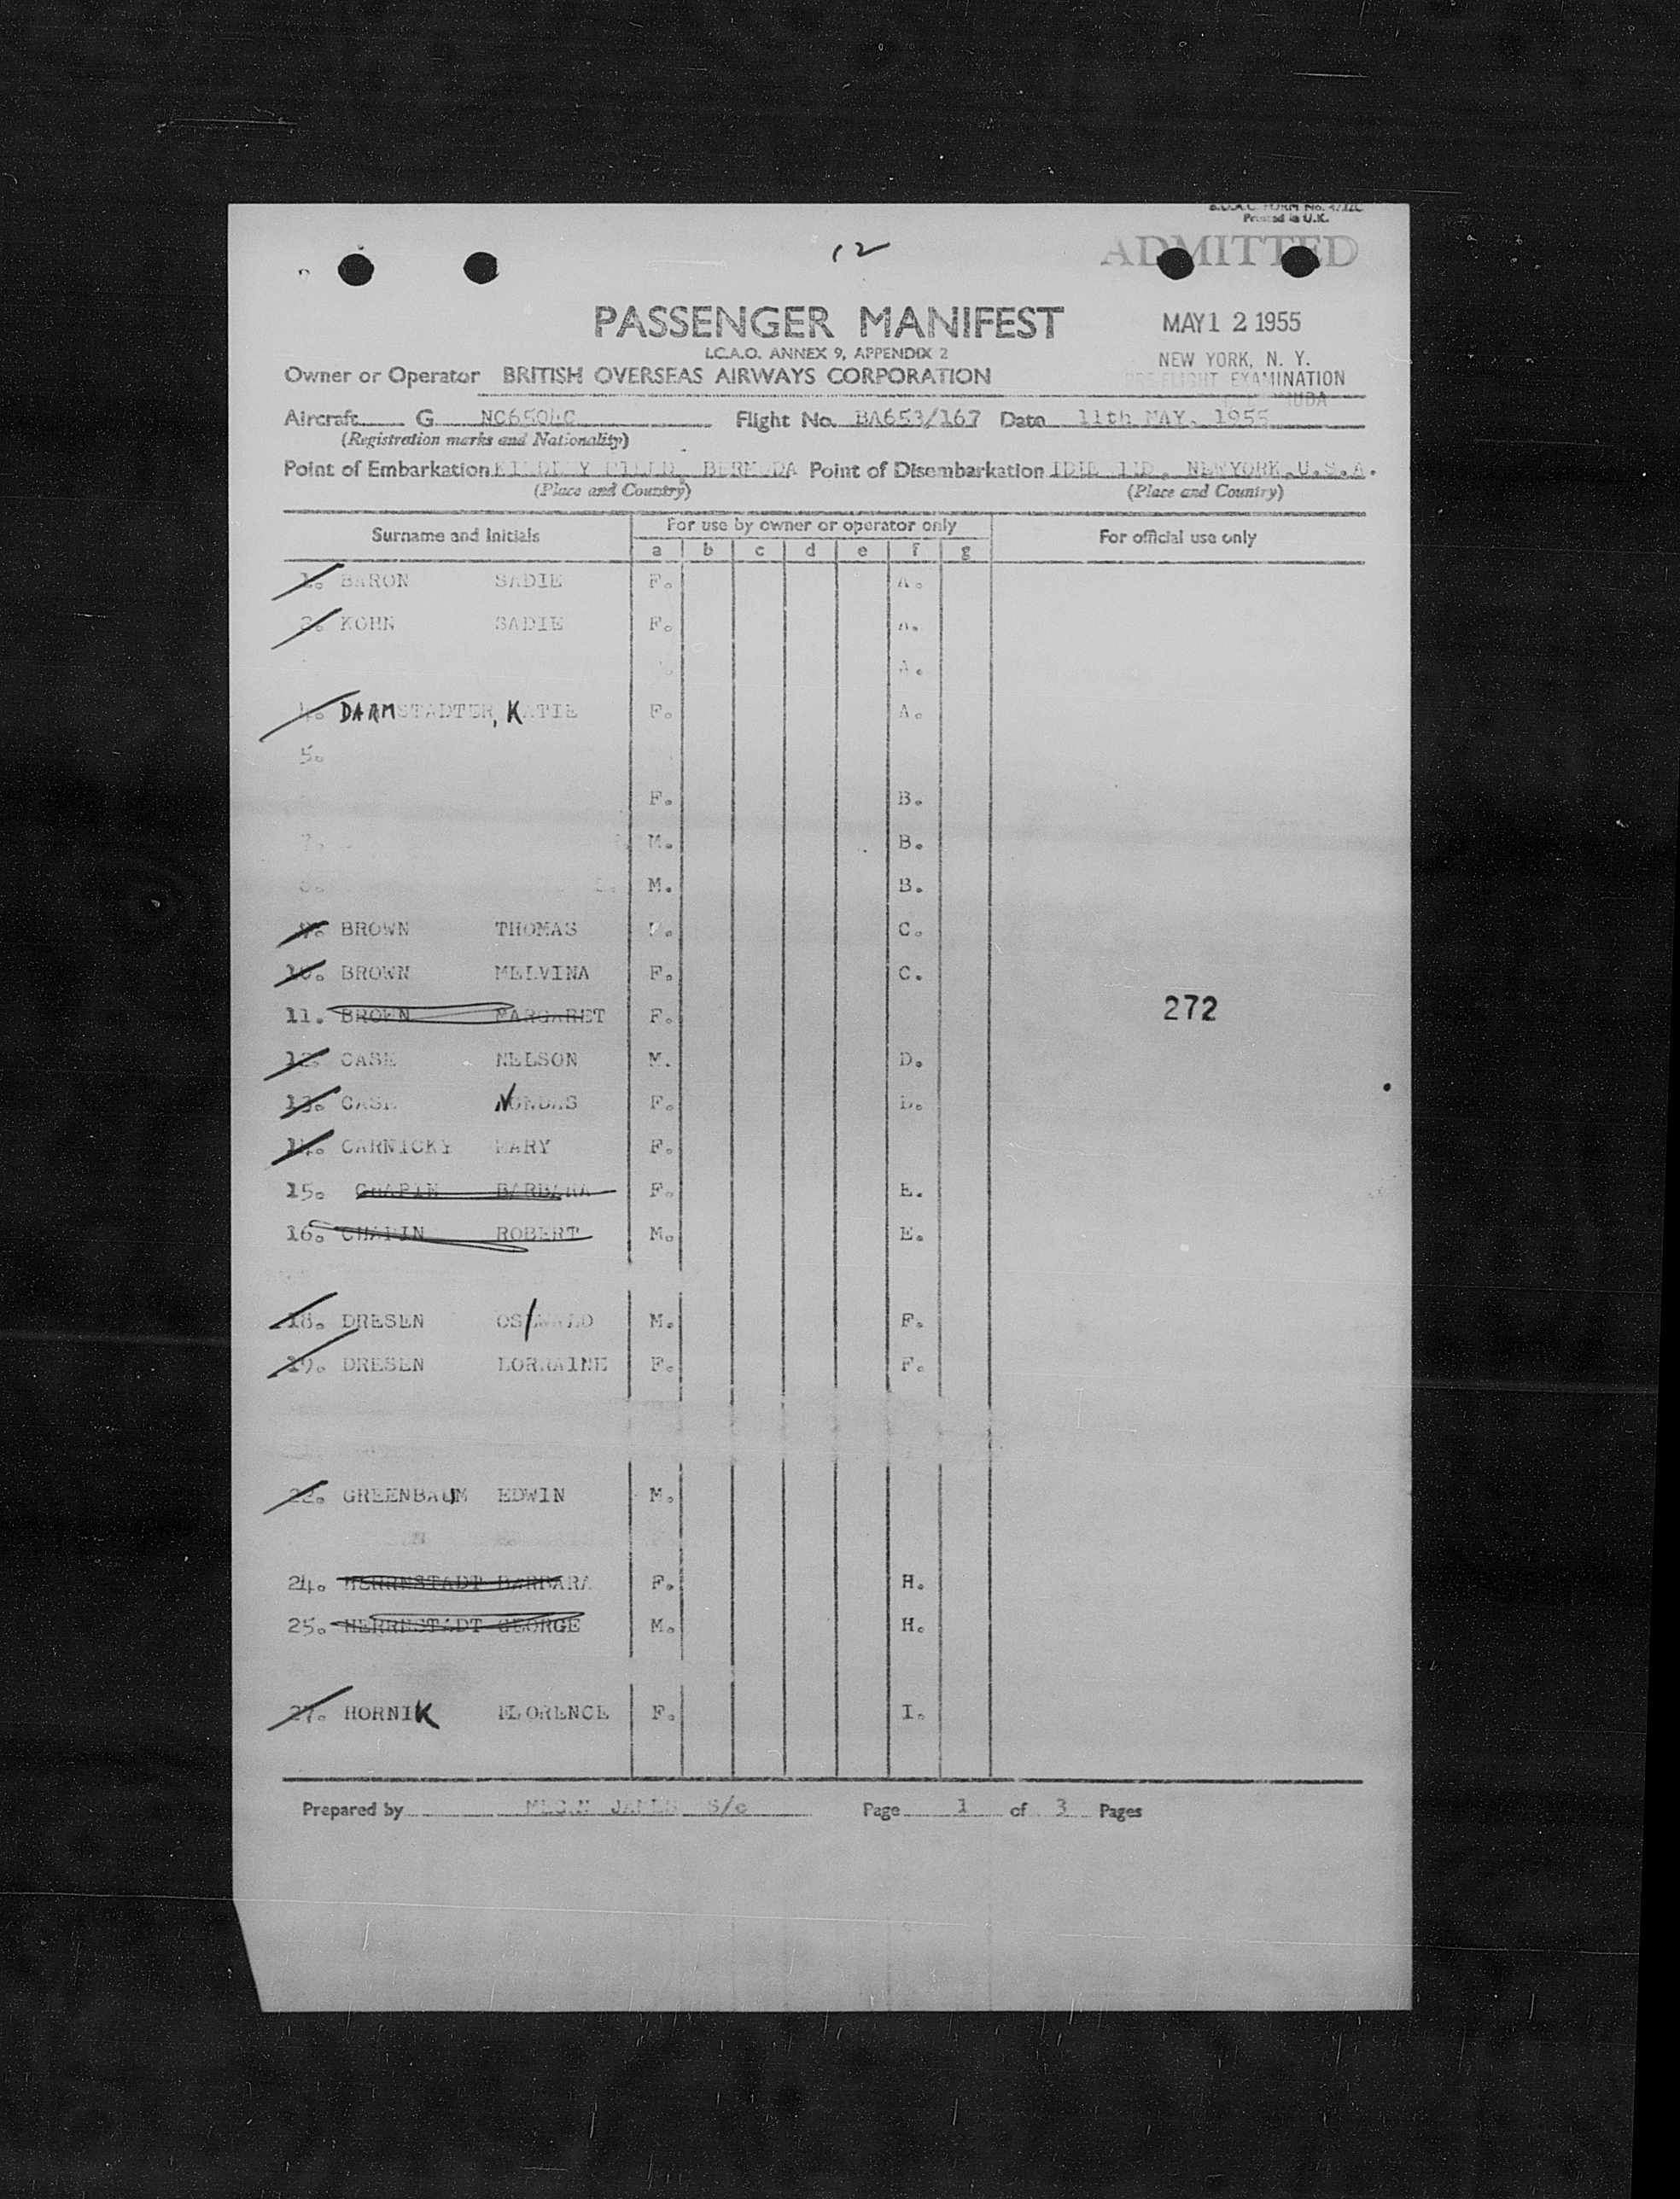 Printed in U.K.
12
ADMITTED
PASSENGER MANIFEST
MAY 12 1955
I.C.A.O. ANNEX 9, APPENDIX 2
NEW YORK, N. Y.
Owner or Operator BRITISH OVERSEAS AIRWAYS CORPORATION
FLIGHT EXAMINATION
Aircraft G Flight No. BA653/167 Date 11th MAY. 1955
(Registration marks and Nationality)
Point of Embarkation KINDLEY FIELD, BERMUDA Point of Disembarkation IDLEWILD, NEWYORK, U.S.A.
(Place and Country) (Place and Country)
Surname and Initials For use by owner or operator only For official use only
a b c d e f g
1. BARON SADIE F. A.
2. KOHN SADIE F. A.
A.
4. DARMSTADTER, KATIE F. A.
5.
F. B.
7. M. B.
8. M. B.
9. BROWN THOMAS C.
10. BROWN MELVINA F. C.
11. BROWN MARGARET F.
272
12. CASE NELSON M. D.
13. CASE F. D.
14. CARNICKY MARY F.
15. CHAPIN BARBARA F. E.
16. CHAPIN ROBERT M. E.
18. DRESEN M. F.
19. DRESEN LORRAINE F. F.
22. GREENBAUM EDWIN M.
24. HERRNSTADT BARBARA F. H.
25. HERRNSTADT GEORGE M. H.
27. HORNIK FLORENCE F. I.
Prepared by S/c Page 1 of 3 Pages